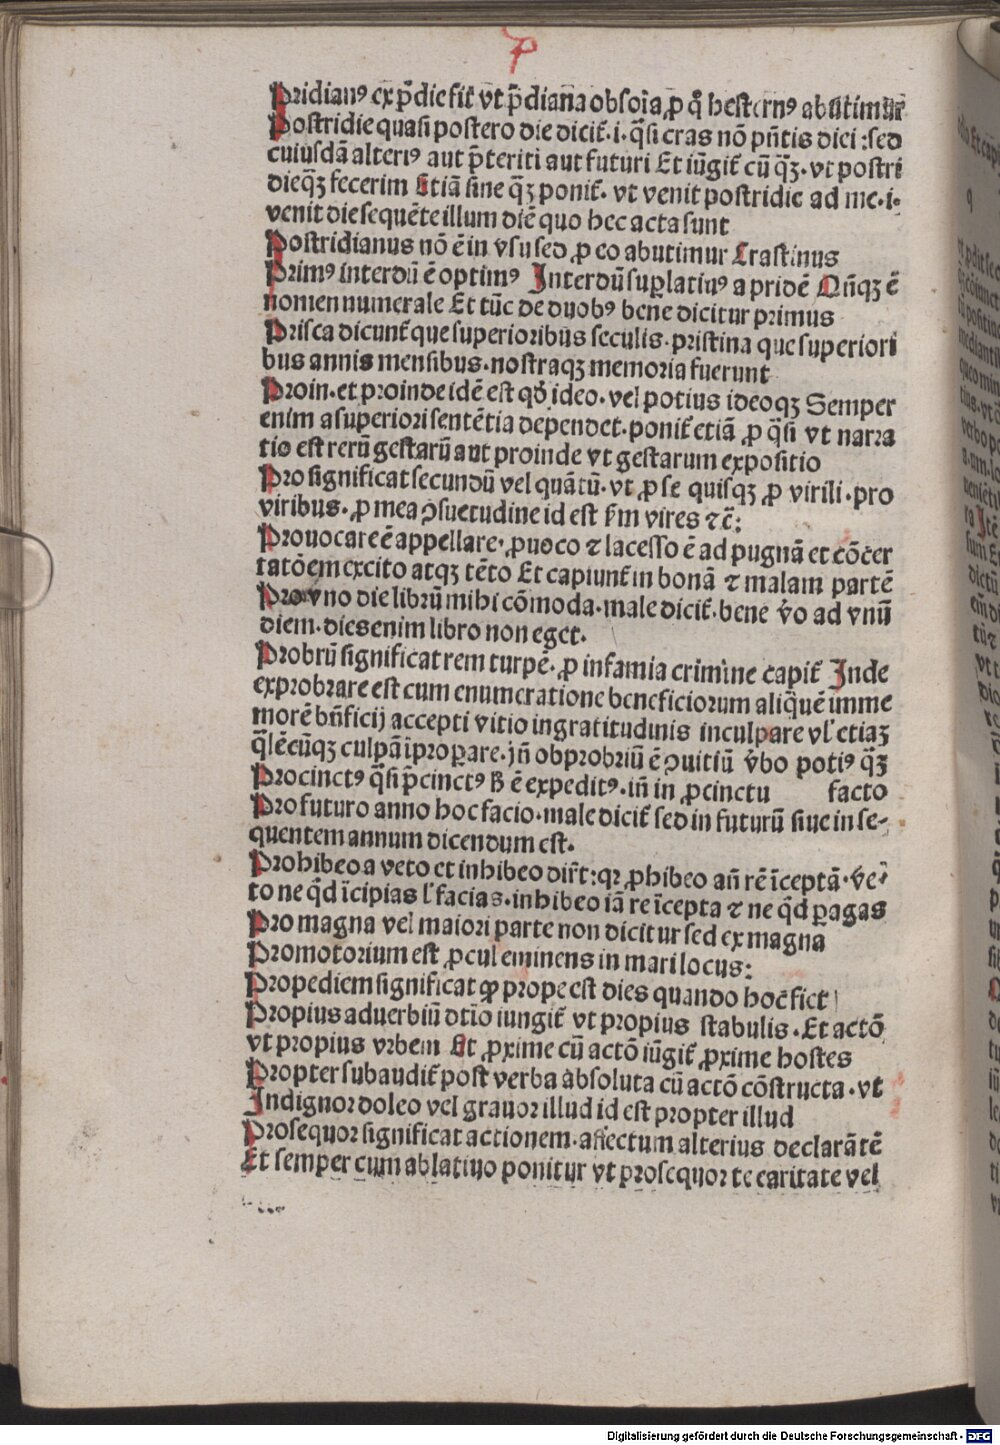 P
Pridianꝰ ex p̄die fit̄ vt p̄diana obsoīa ꝓ qͦ hesternꝰ abutimur
Postridie quasi postero die dicit̄ .i. q̄si cras nō pn̄tis diei : sed
cuiusdā alteriꝰ aut p̄teriti aut futuri Et iūgit̄ cū qꝫ̄ · vt postri
dieqꝫ fecerim Etiā sine qꝫ̄ ponit̄ · vt venit postridie ad me · i ·
venit die sequēte illum diē quo hec acta sunt
Postridianus nō ē in vsu sed ꝓ eo abutimur Crastinus
Primꝰ interdū ē optimꝰ Interdū suꝑlatiuꝰ a pridē Qn̄qꝫ ē
nomen numerale Et tūc de duobꝰ bene dicitur primus
Prisca dicunt̄ que superioribus seculis · pristina que superiori
bus annis mensibus · nostraqꝫ memoria fuerunt
Proin · et proinde idē est qd̄ ideo · vel potius ideoqꝫ Semper
enim a superiori sentētia dependet · ponit̄ etiā ꝓ q̄si vt narra
tio est rerū gestarū aut proinde vt gestarum expositio
Pro significat secundū vel quātū · vt ꝓ se quisqꝫ ꝓ virili · pro
viribus · ꝓ mea ꝯsuetudine id est ẜm vires ⁊ c̄ :
Prouocare ē appellare · ꝓuoco ⁊ lacesso ē ad pugnā et cōcer
tatōem excito atqꝫ tēto Et capiunt̄ in bonā ⁊ malam partē
Pro vno die librū mihi cōmoda · male dicit̄ · bene v̄o ad vnū
diem · dies enim libro non eget ·
Probrū significat rem turpē · ꝓ infamia crimine capit̄ Inde
exprobrare est cum enumeratione beneficiorum aliquē imme
morē bn̄ficij accepti vitio ingratitudinis inculpare vl̄ etiaꝫ
q̄lēcūqꝫ culpā īproꝑare · jn̄ obprobriū ē ꝯuitiū v̄bo potiꝰ qꝫ̄
Procinctꝰ q̄si p̄cinctꝰ ꝫ ē expeditꝰ · in̄ in ꝓcinctu facto
Pro futuro anno hoc facio · male dicit̄ sed in futurū siue in se-
quentem annum dicendum est ·
Prohibeo a veto et inhibeo dif̄t : qꝛ ꝓhibeo an̄ rē īceptā · ve-
to ne qd̄ īcipias l̄ facias · inhibeo iā re īcepta ⁊ ne qd̄ ꝑagas
Pro magna vel maiori parte non dicitur sed ex magna
Promotorium est ꝓcul eminens in mari locus :
Propediem significat ꝙ prope est dies quando hoc fiet
Propius aduerbiū dtīo iungit̄ vt propius stabulis · Et actō
vt propius vrbem Et ꝓxime cū actō iūgit̄ ꝓxime hostes
Propter subaudit̄ post verba absoluta cū actō cōstructa · vt
Indignor doleo vel grauor illud id est propter illud
Prosequor significat actionem · affectum alterius declarātē
Et semper cum ablatiuo ponitur vt prosequor te caritate vel
Digitalisierung gefördert durch die Deutsche Forschungsgemeinschaft - DFG